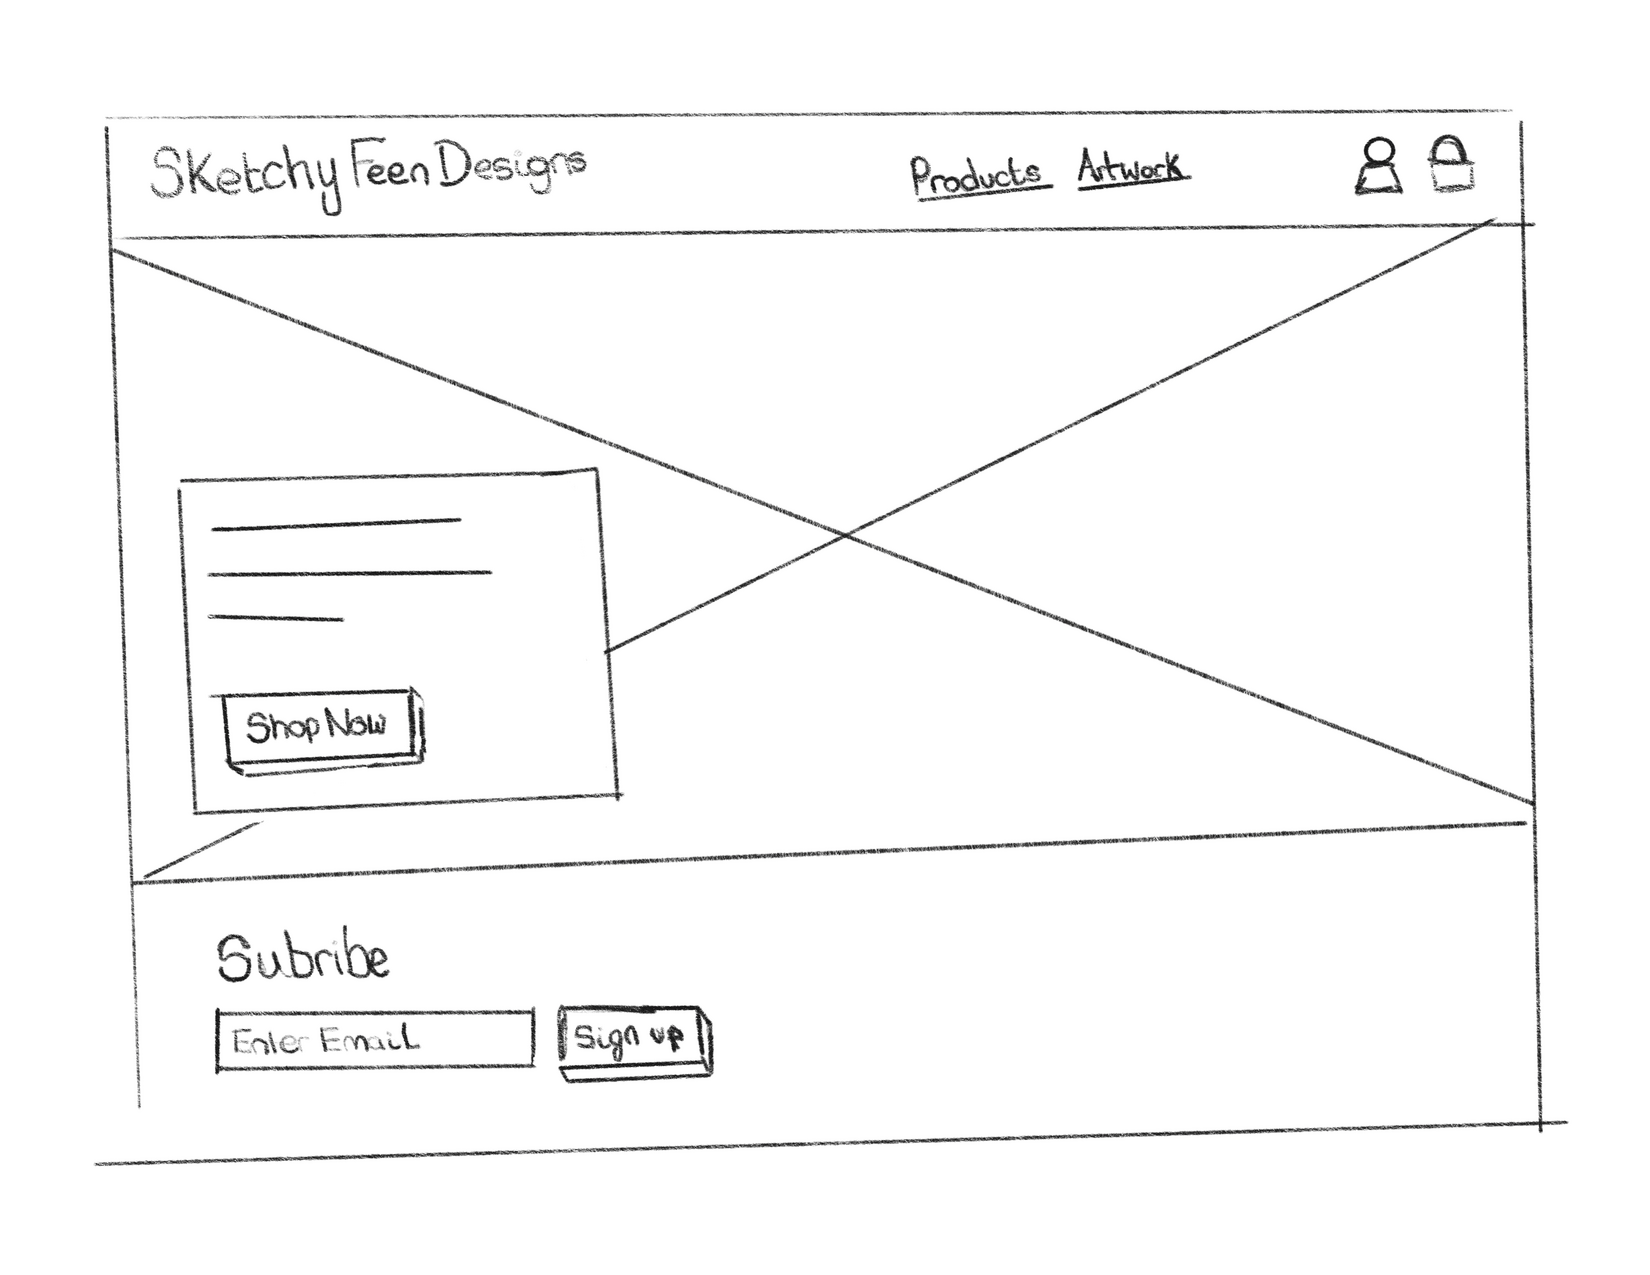 Sketchy Feen Designs
Products Artwork
Shop Now
Subribe
Enter Email
Sign up